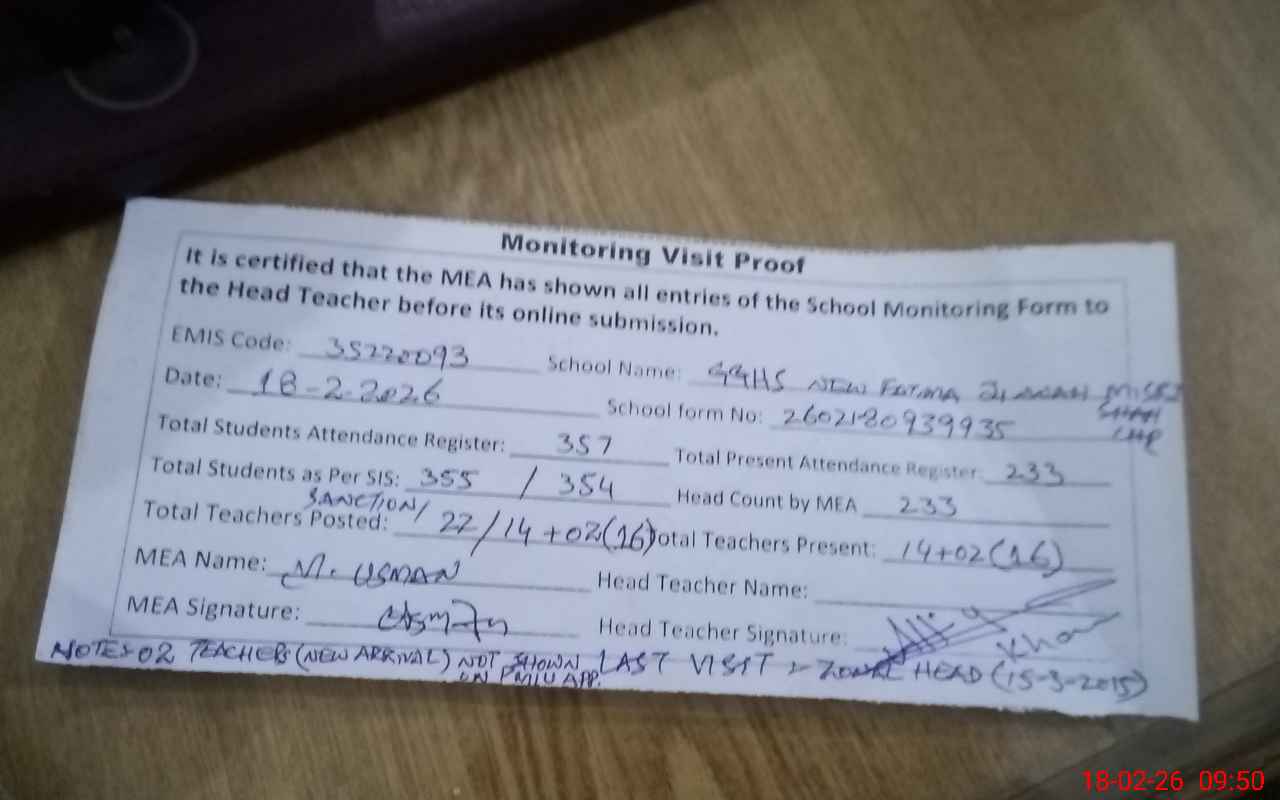 Monitoring Visit Proof
It is certified that the MEA has shown all entries of the School Monitoring Form to
the Head Teacher before its online submission.
EMIS Code: 35220093 School Name: GGHS NEW FATIMA JINNAH MISRI
SHAH
LHR
Date: 18-2-2026 School form No: 2602180939935
Total Students Attendance Register: 357 Total Present Attendance Register: 233
Total Students as Per SIS: 355 / 354 Head Count by MEA 233
SANCTION/
Total Teachers Posted: 22/14+02(16) Total Teachers Present: 14+02(16)
MEA Name: M. USMAN Head Teacher Name:
MEA Signature: Head Teacher Signature: Khan
NOTES 02 TEACHERS (NEW ARRIVAL) NOT SHOWN LAST VISIT HEAD (15-3-2015)
ON PMIU APP.
18-02-26 09:50